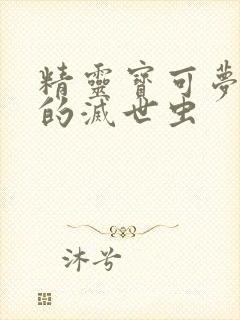 精靈寶可夢
的滅世虫
沐兮